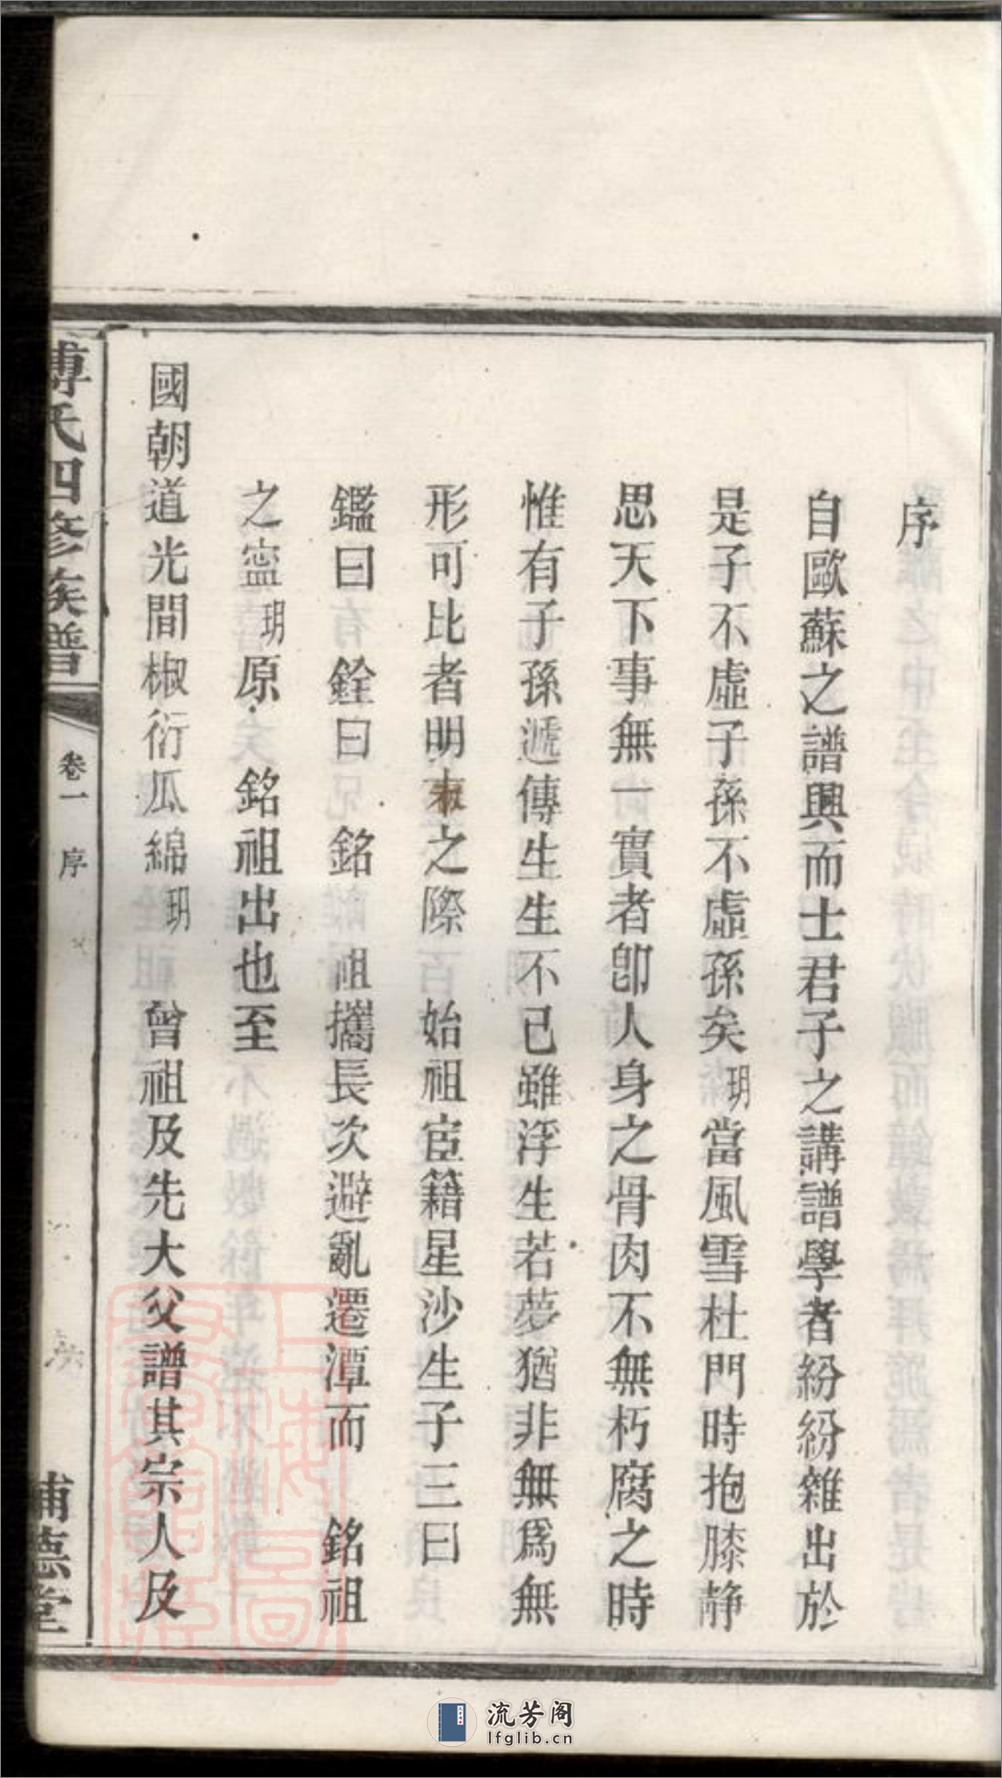 序
自歐蘇之譜興而士君子之講譜學者紛紛雜出於
是子不虛子孫不虛孫矣玥當風雪杜門時抱膝静
思天下事無一實者卽人身之骨肉不無朽腐之時
惟有子孫遞傳生生不已雖浮生若夢猶非無爲無
形可比者明末之際 始祖宦籍星沙生子三曰
鑑曰 銓曰 銘 祖攜長次避亂遷潭而 銘祖
之寍玥原 銘祖出也至
國朝道光間椒衍瓜綿玥 曾祖及先大父譜其宗人及
傅氏四修族譜
卷一 序
六
浦德堂
上海圖書館藏
流芳阁
lfglib.cn